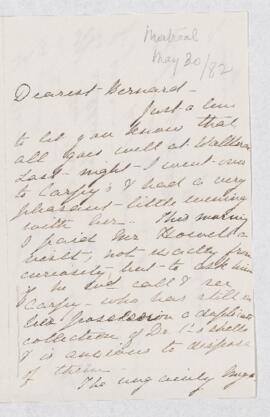 Montreal
May 30/82
Dearest Bernard -
Just a line
to let you know that
all goes well at Waltham
Last - night - I went over
to Carry's & had a very
pleasant - little evening
with her. This morning
I paid Mr Howell a
visit, not exactly from
curiosity - but - to ask him
if he had call & see
Carry - who has still in
his possession a duplicate
collection of Dr. 's shells
& is anxious to dispose
of them -
The